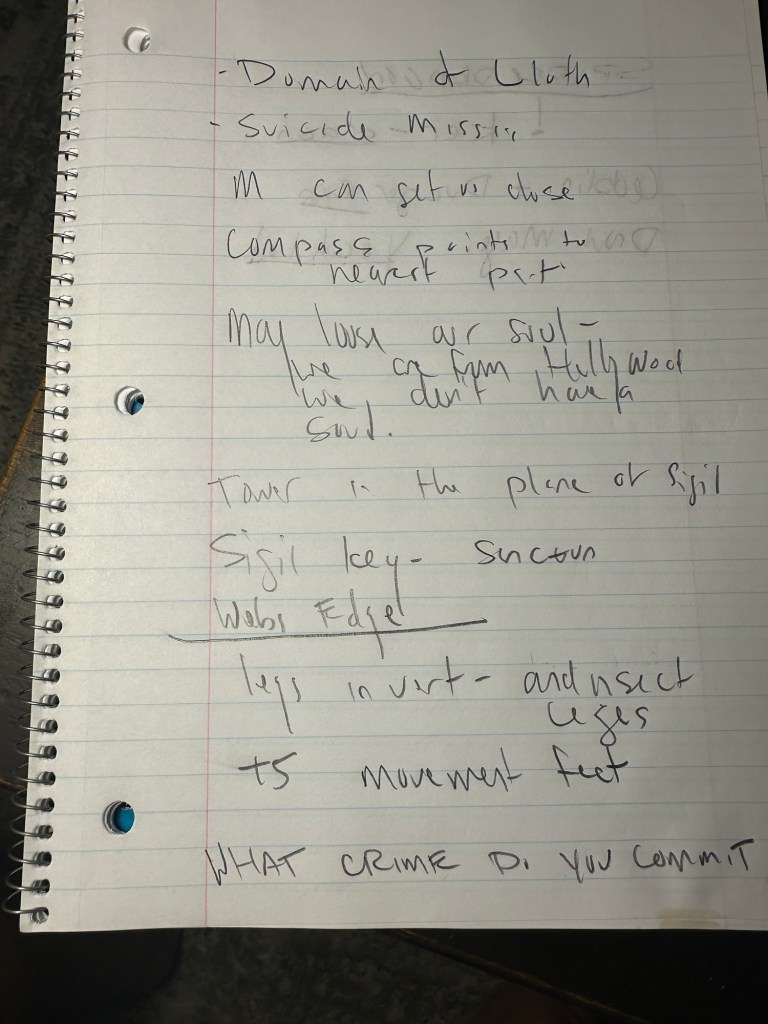 - Domain of Lloth
- Suicide Missin
M can get us close
Compass points to
nearest part
May loose our soul -
we are from Hollywood
we don't have a
soul.
Tower in the plane of Sigil
Sigil key -
Webs Edge
legs invert - and nsect
legs
+5 movement feet
WHAT CRIME Di YOU COMMIT